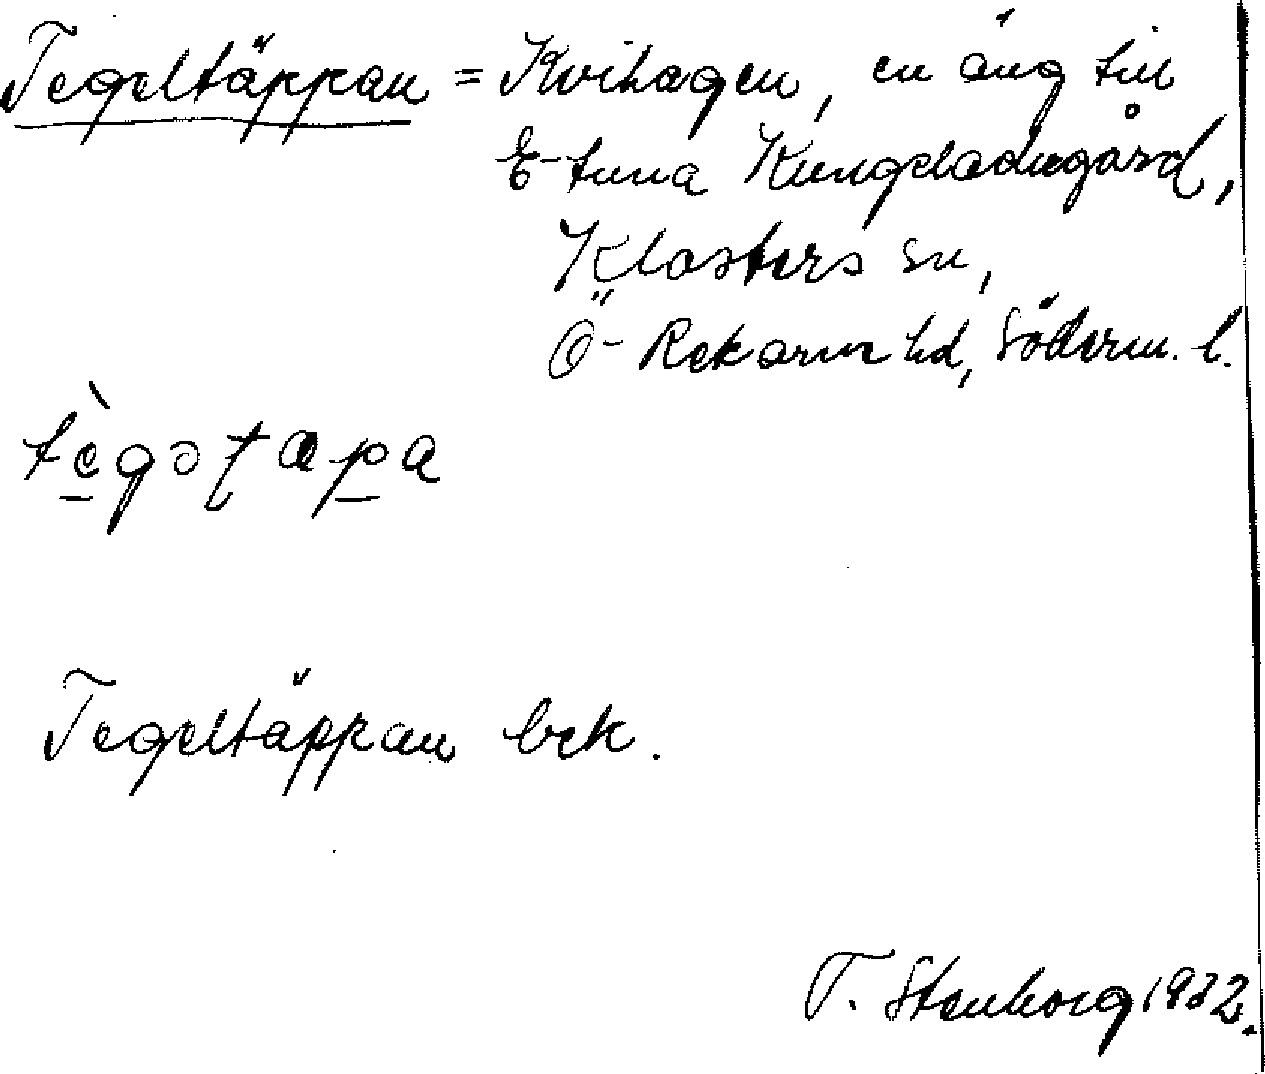 Tegeltäppan = Kvihagen, en äng till
E-tuna Kungsladugård,
Klosters sn,
Ö-Rekarne hd, Söderm. l.
tègəʈapa
Tegeltäppan bek.
T. Stenborg 1932.